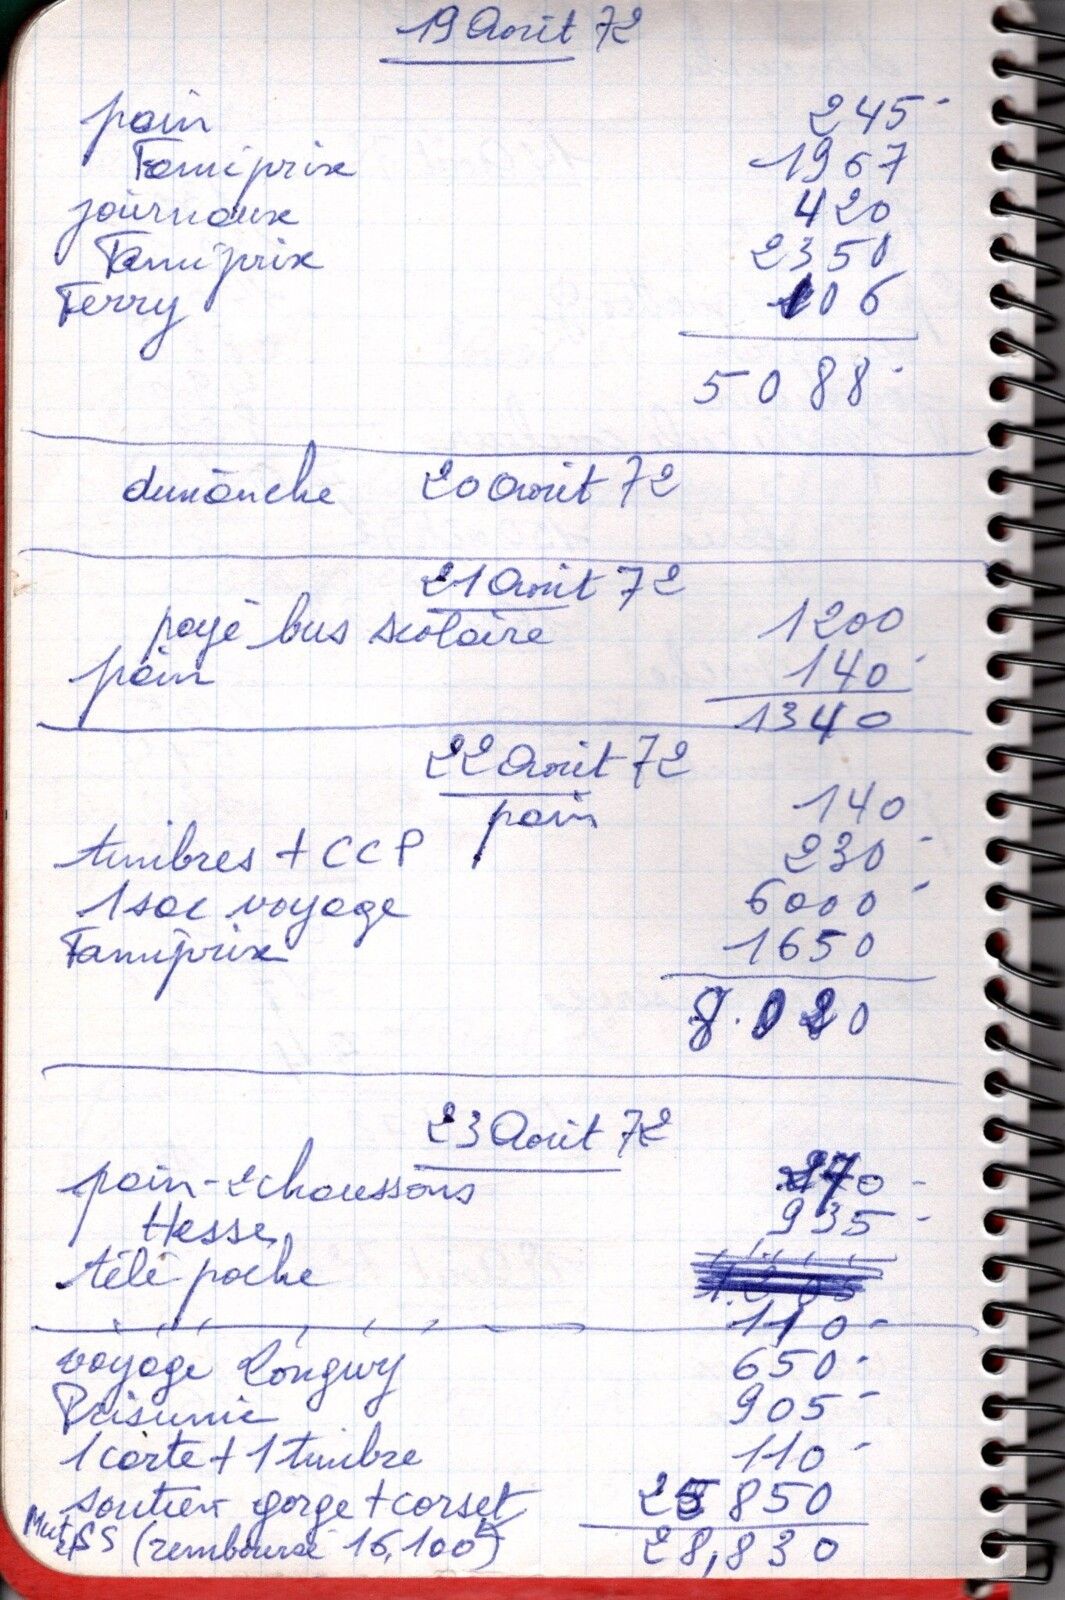 19 Août 72
pain 245
Famiprix 1967
journaux 420
Famiprix 2350
Ferry 106
5088
dimanche 20 Août 72
21 Août 72
payé bus scolaire 1200
pain 140
1340
22 Août 72
pain 140
timbres + CCP 230
1 sac voyage 6000
Famiprix 1650
8.020
23 Août 72
pain - 2 chaussons 270
Hesse 935
télé poche
110
voyage Longwy 650
Prisunic 905
1 carte + 1 timbre 110
soutien gorge + corset 25850
SS (remboursé 16,100) 28,830